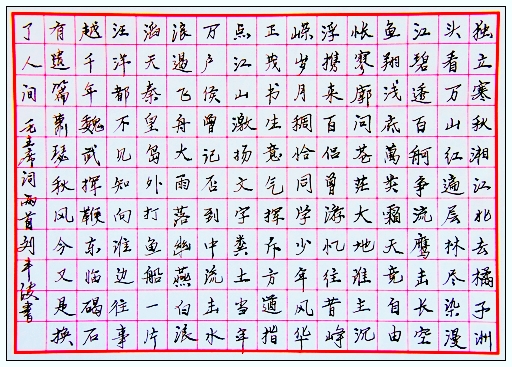 独立寒秋湘江北去橘子洲
头看万山红遍层林尽染漫
江碧透百舸争流鹰击长空
鱼翔浅底萬类霜天竞自由
怅寥廓问苍茫大地谁主沉
浮携来百侣曾游忆往昔峥
嵘岁月稠恰同学少年风华
正茂书生意气挥斥方遒指
点江山激扬文字粪土当年
万户侯曾记否到中流击水
浪遏飞舟大雨落幽燕白浪
滔天秦皇岛外打鱼船一片
汪洋都不见知向谁边往事
越千年魏武挥鞭东临碣石
有遗篇萧瑟秋风今又是换
了人间 毛主席词两首